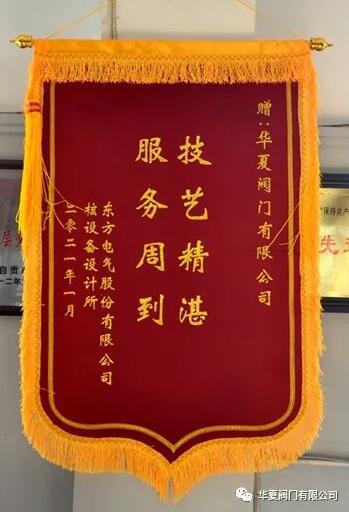 赠：华夏阀门有限公司
技艺精湛
服务周到
东方电气股份有限公司
核设备设计所
二零二一年一月
自贡
华夏阀门有限公司